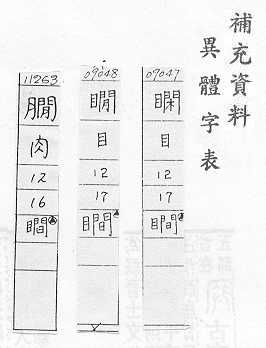 補充資料
異體字表
09047
目
12
17
瞯
09048
瞷
目
12
17
瞯
11263
肉
12
16
瞯